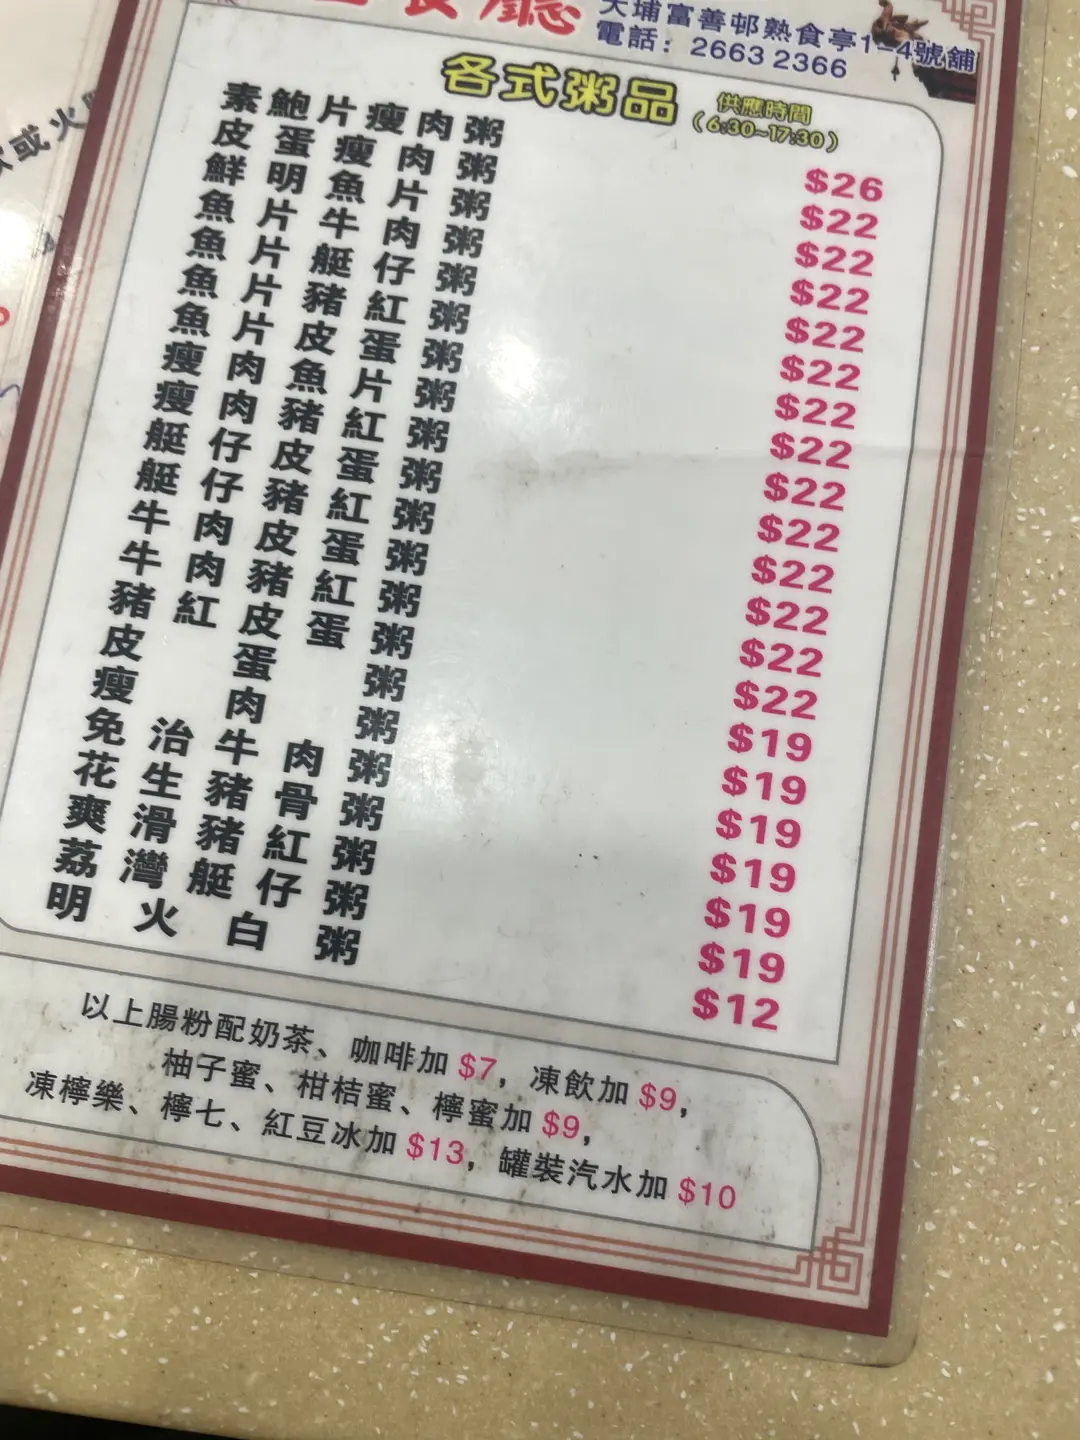 廳
大埔富善邨熟食亭1-4號舖
電話：2663 2366
各式粥品 供應時間
(6:30~17:30)
素鮑片瘦肉粥 $26
皮蛋瘦肉粥 $22
鮮明魚片粥 $22
魚片牛肉粥 $22
魚片艇仔粥 $22
魚片豬紅粥 $22
魚片皮蛋粥 $22
瘦肉魚片粥 $22
瘦肉豬紅粥 $22
艇仔皮蛋粥 $22
艇仔豬紅粥 $22
牛肉皮蛋粥 $22
牛肉豬紅粥 $22
豬紅皮蛋粥 $22
皮蛋粥 $19
瘦肉粥 $19
免治牛肉粥 $19
花生豬骨粥 $19
爽滑豬紅粥 $19
荔灣艇仔粥 $19
明火白粥 $12
以上腸粉配奶茶、咖啡加 $7，凍飲加 $9，
柚子蜜、柑桔蜜、檸蜜加 $9，
凍檸樂、檸七、紅豆冰加 $13，罐裝汽水加 $10
或火